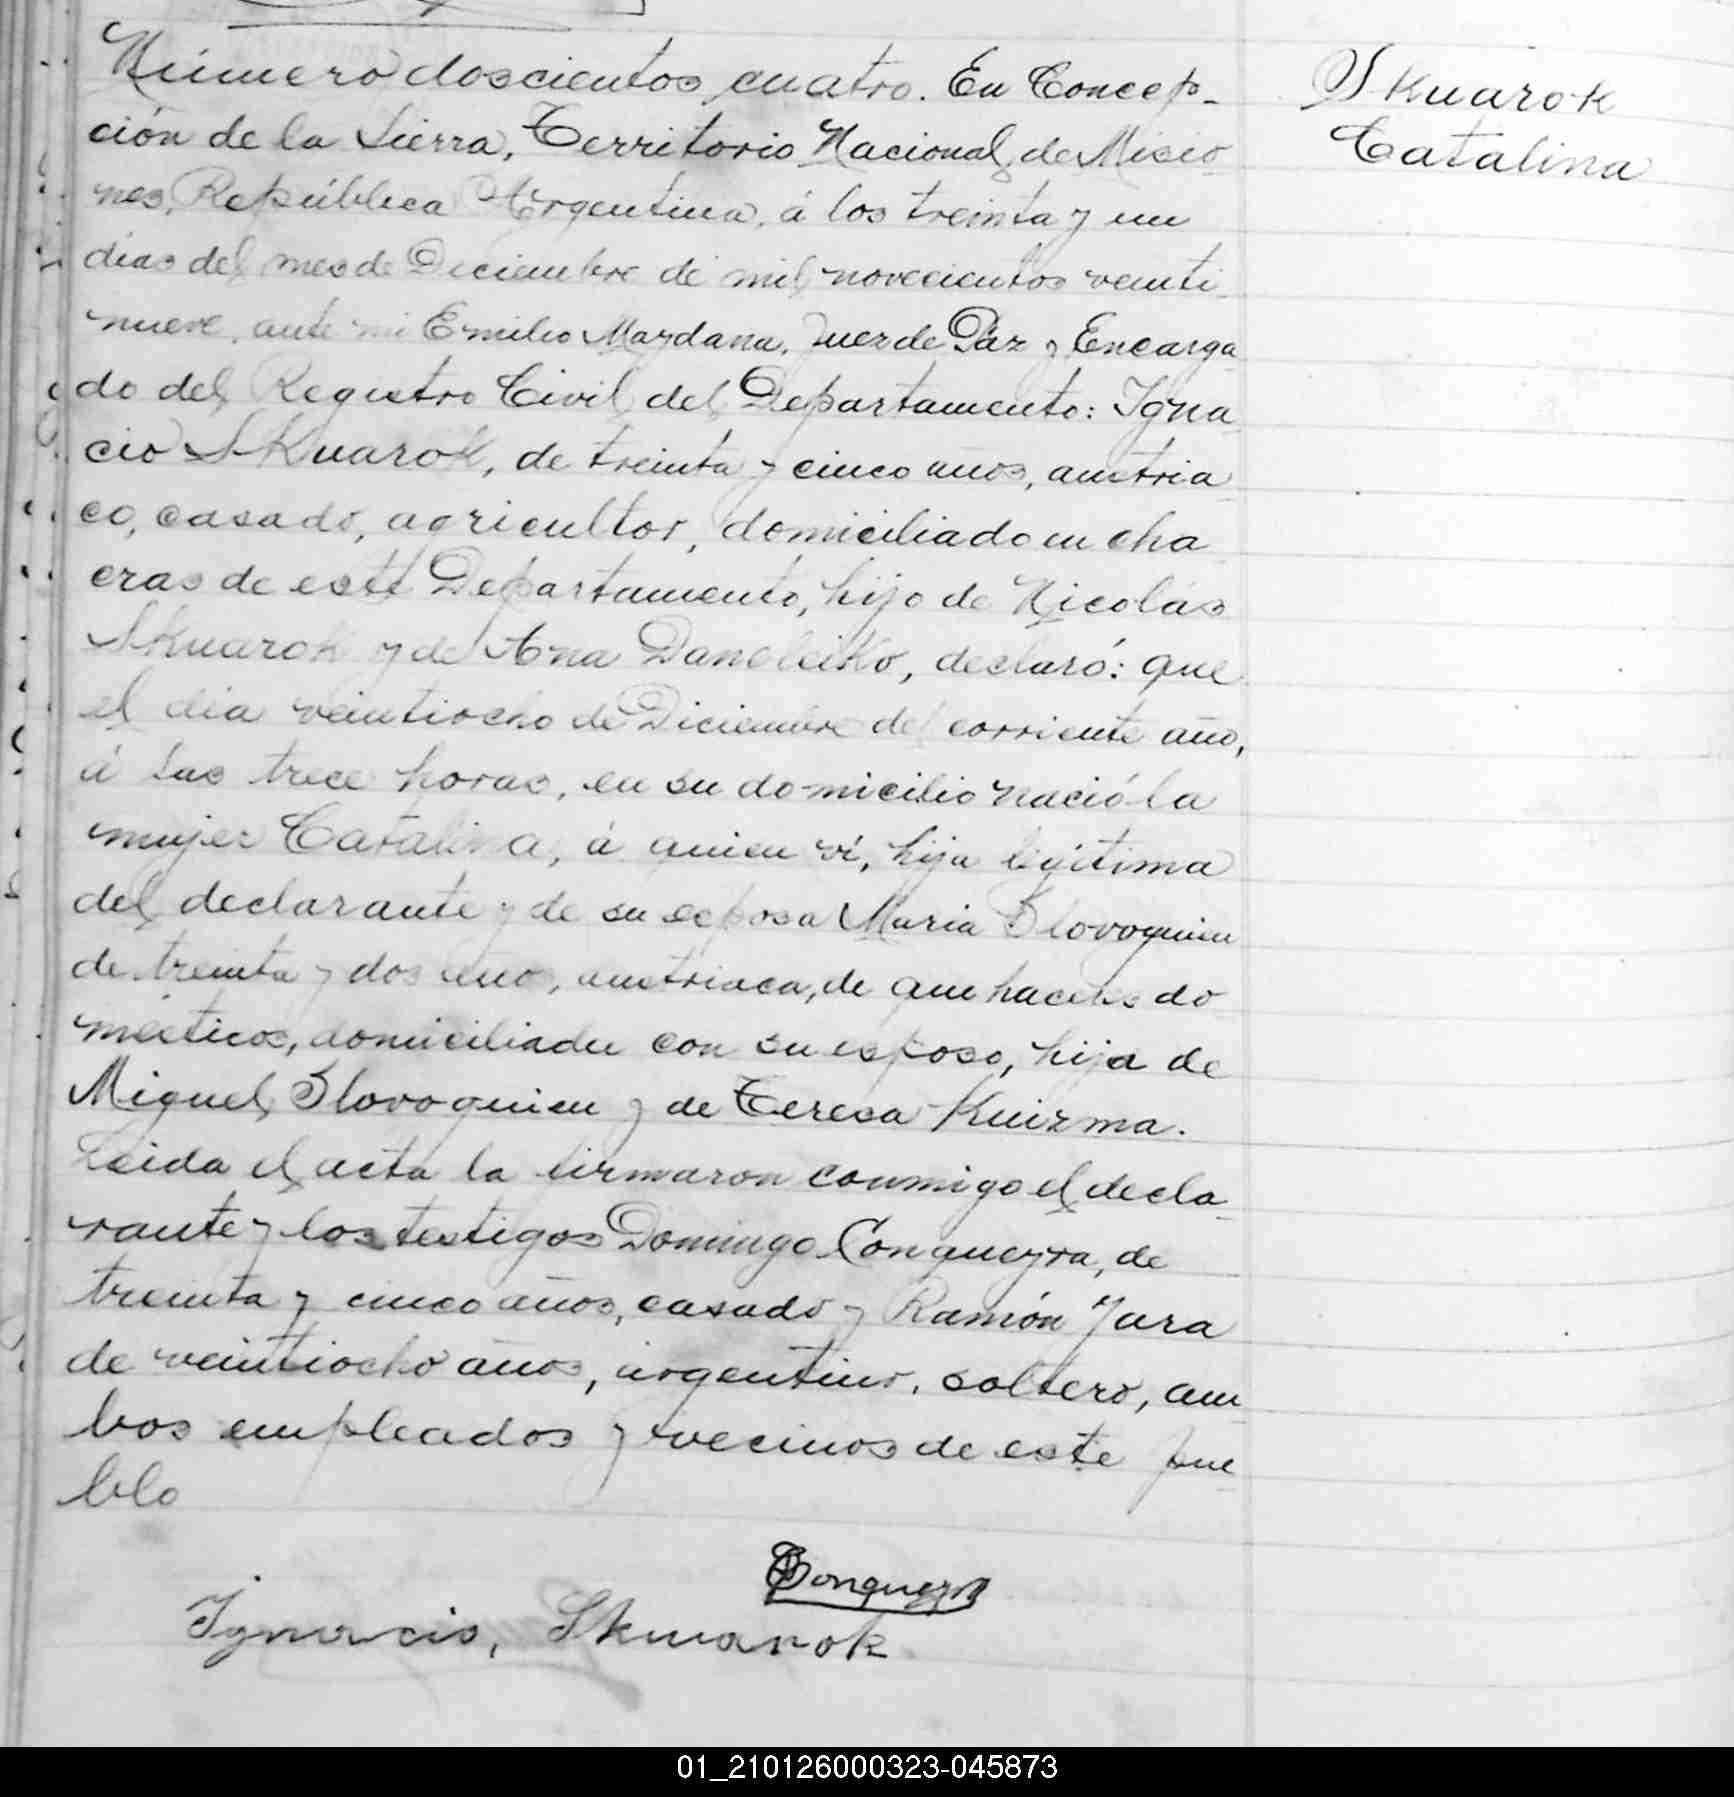 Número doscientos cuatro. En Concep-
ción de la Sierra, Territorio Nacional de Misio
nes, República Argentina, á los treinta y un
dias del mes de Diciembre de mil novecientos veinti
nueve, ante mi Emilio Maydana, Juez de Páz y Encarga
do del Registro Civil del Departamento: Igna
cio SKuarok, de treinta y cinco años, austria
co, casado, agricultor, domiciliado en cha
cras de este Departamento, hijo de Nicolás
SKuarok y de Ana DaneleiKo, declaró: que
el dia veintiocho de Diciembre del corriente año,
á las trece horas, en su domicilio nació la
mujer Catalina, á quien ví, hija legítima
del declarante y de su esposa Maria Slovoquien
de treinta y dos años, austriaca, de quehaceres do
mésticos, domiciliada con su esposo, hija de
Miguel Slovoquien y de Teresa Kuizma.
Leida el acta la firmaron conmigo el decla
rante y los testigos Domingo Conqueyra, de
treinta y cinco años, casado y Ramón Jara
de veintiocho años, argentino, soltero, am
bos empleados y vecinos de este pue
blo
Conqueyra
Ignacio, Skwarok
SKuarok
Catalina
01_210126000323-045873